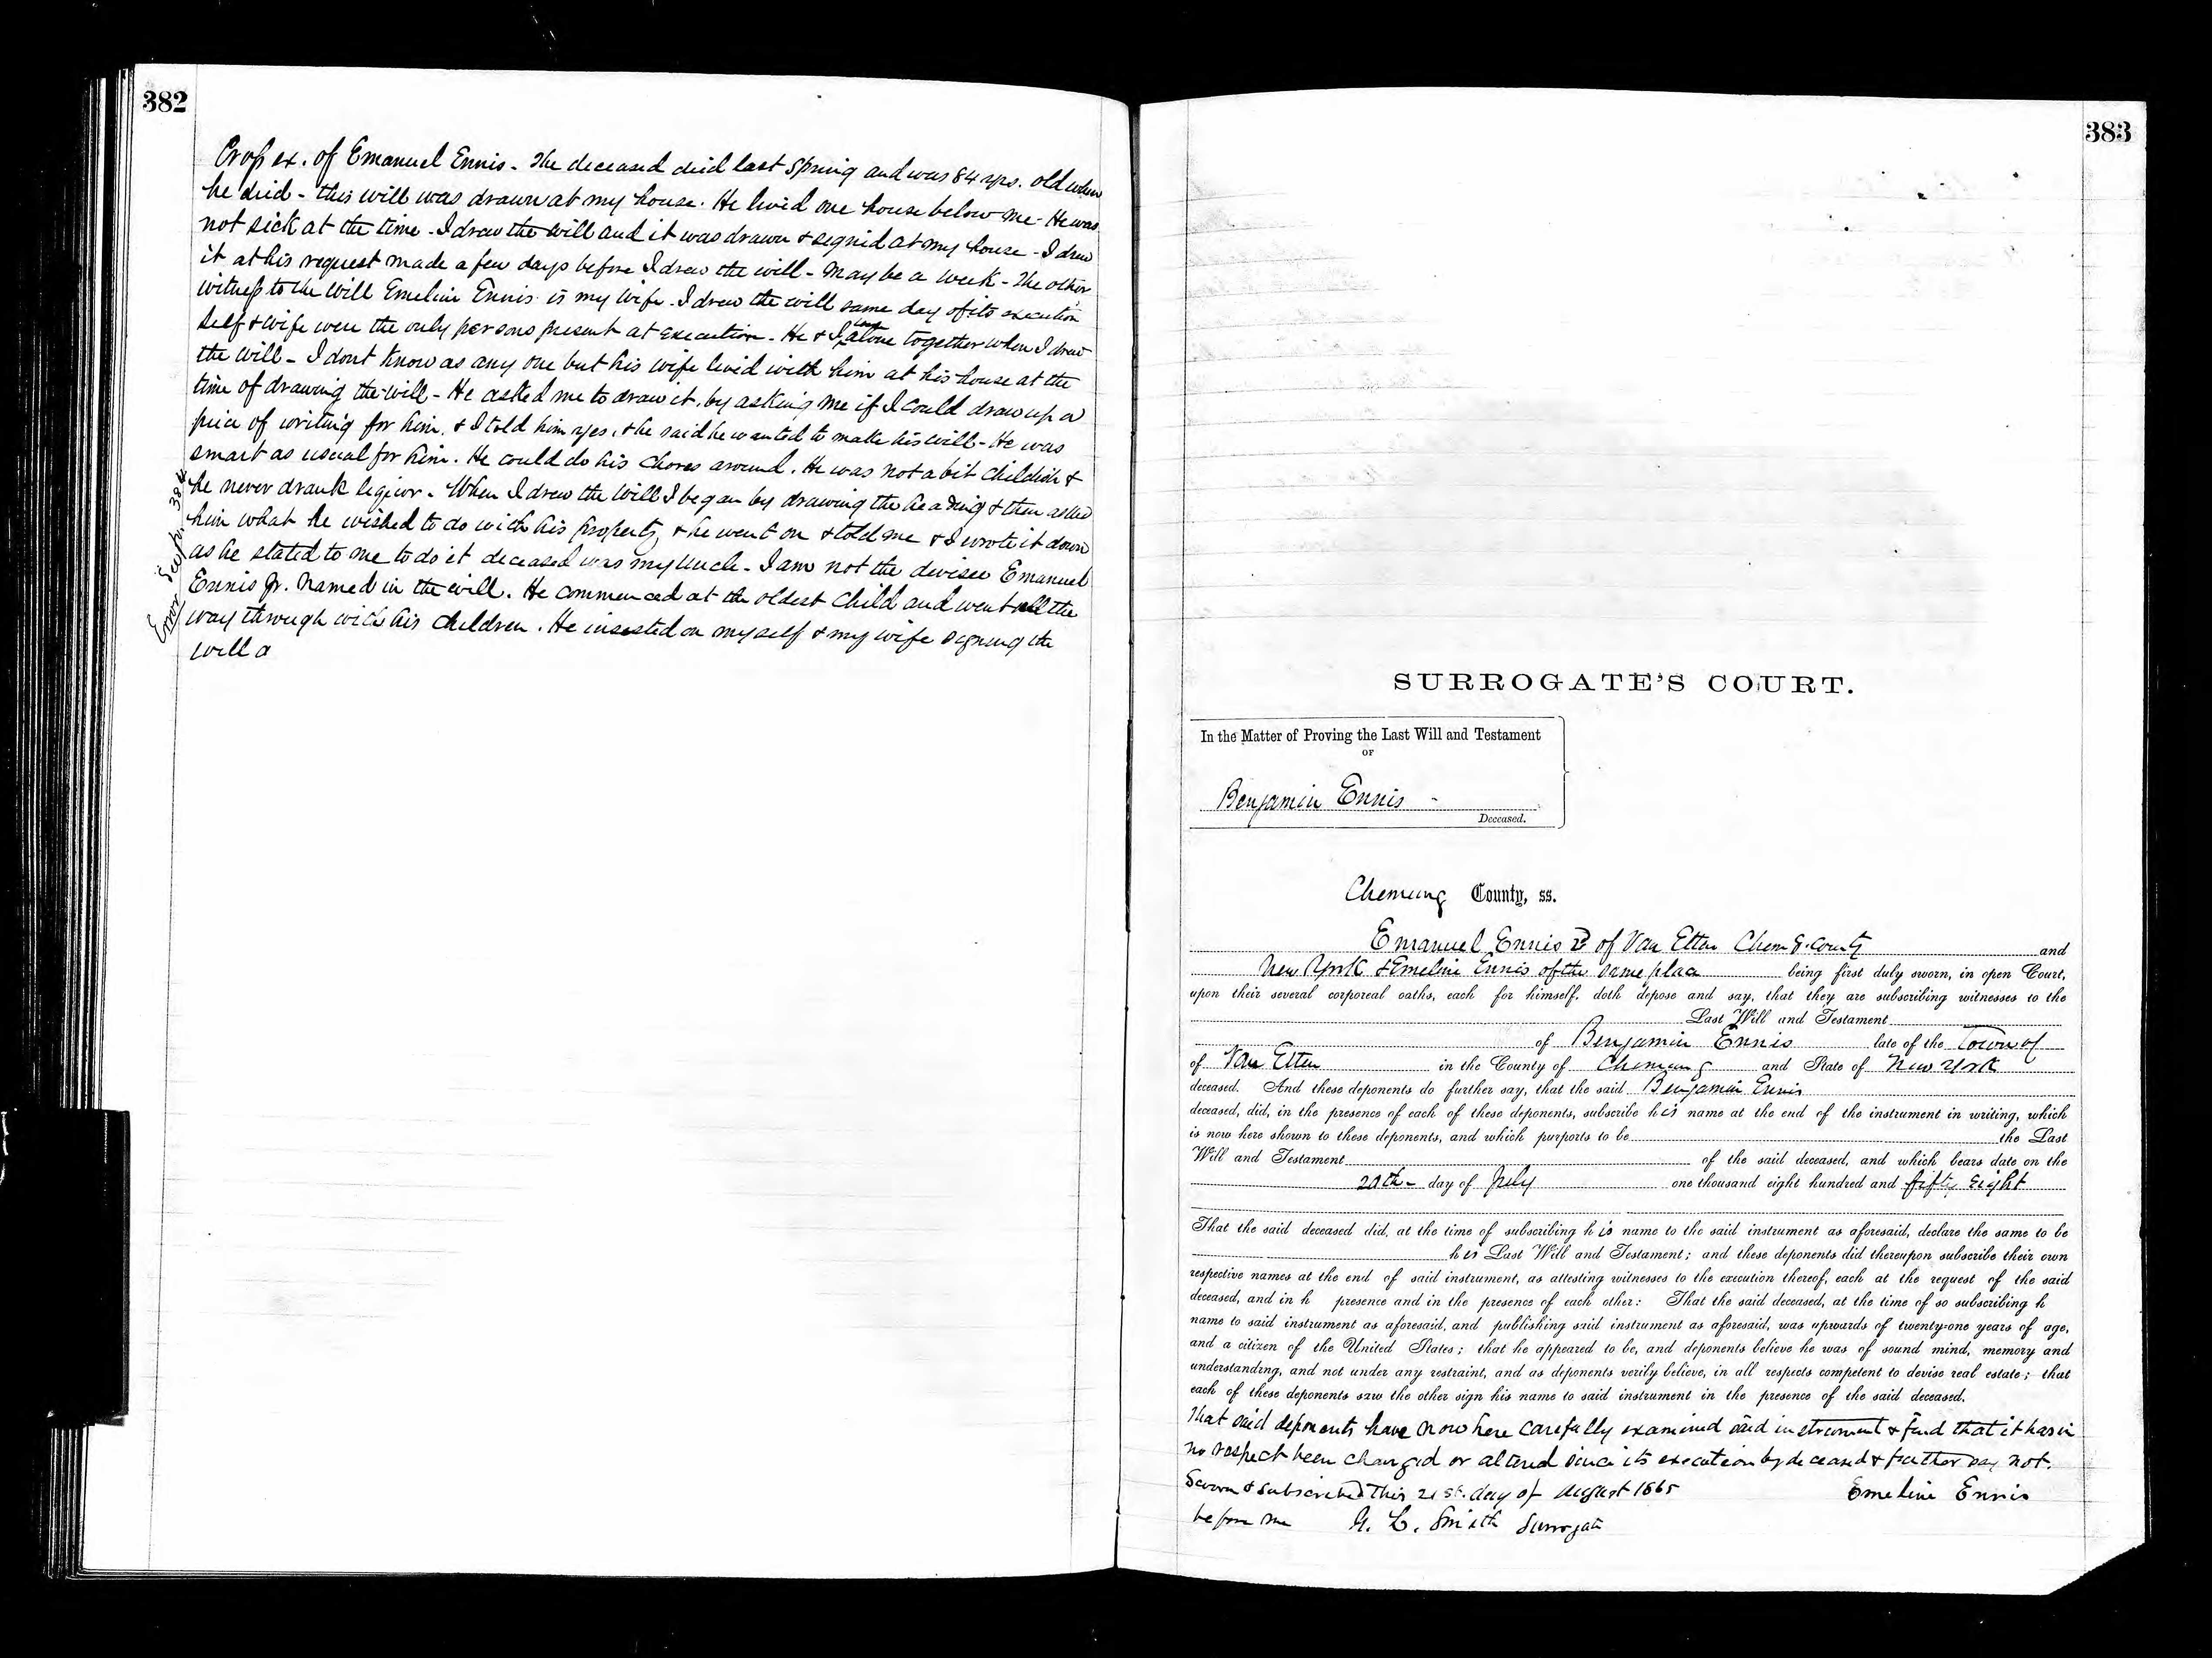 382
Cross ex. of Emanuel Ennis - The deceased died last Spring and was 84 yrs. old when
he died - this will was drawn at my house. He lived one house below me - He was
not sick at the time - I drew the will and it was drawn & signed at my house - I drew
it at his request made a few days before I drew the will - may be a week - The other
witness to the will Emeline Ennis is my wife. I drew the will same day of its execution
self & wife were the only persons present at execution - He & I was alone together when I drew
the will - I dont know as any one but his wife lived with him at his house at the
time of drawing the will - He asked me to draw it, by asking me if I could draw up a
piece of writing for him, & I told him yes, & he said he wanted to make his will - He was
smart as usual for him. He could do his chores around. He was not a bit childish &
he never drank liquor - When I drew the will I began by drawing the heading & then asked
him what he wished to do with his property, & he went on & told me & I wrote it down
as he stated to me to do it deceased was my uncle - I am not the devisee Emanuel
Ennis Jr. named in the will. He commenced at the oldest child and went all the
way through with his children. He insisted on myself & my wife signing the
will a
Error 384
383
SURROGATE'S COURT.
In the Matter of Proving the Last Will and Testament
OF
Benjamin Ennis -
Deceased.
Chemung County, ss.
Emanuel Ennis 2d of Van Etten Chemg. County and
New York & Emeline Ennis of the same place being first duly sworn, in open Court,
upon their several corporeal oaths, each for himself, doth depose and say, that they are subscribing witnesses to the
Last Will and Testament
of Benjamin Ennis late of the Town of
of Van Etten in the County of Chemung and State of New York
deceased. And these deponents do further say, that the said Benjamin Ennis
deceased, did, in the presence of each of these deponents, subscribe his name at the end of the instrument in writing, which
is now here shown to these deponents, and which purports to be the Last
Will and Testament of the said deceased, and which bears date on the
20th - day of July one thousand eight hundred and fifty eight
That the said deceased did, at the time of subscribing his name to the said instrument as aforesaid, declare the same to be
his Last Will and Testament; and these deponents did thereupon subscribe their own
respective names at the end of said instrument, as attesting witnesses to the execution thereof, each at the request of the said
deceased, and in h presence and in the presence of each other: That the said deceased, at the time of so subscribing h
name to said instrument as aforesaid, and publishing said instrument as aforesaid, was upwards of twenty-one years of age,
and a citizen of the United States; that he appeared to be, and deponents believe he was of sound mind, memory and
understanding, and not under any restraint, and as deponents verily believe, in all respects competent to devise real estate; that
each of these deponents saw the other sign his name to said instrument in the presence of the said deceased.
That said deponents have now here carefully examined said instrument & find that it has in
no respect been changed or altered since its execution by deceased & further say not.
Sworn & subscribed this 21st. day of August 1865 Emeline Ennis
before me G. L. Smith Surrogate